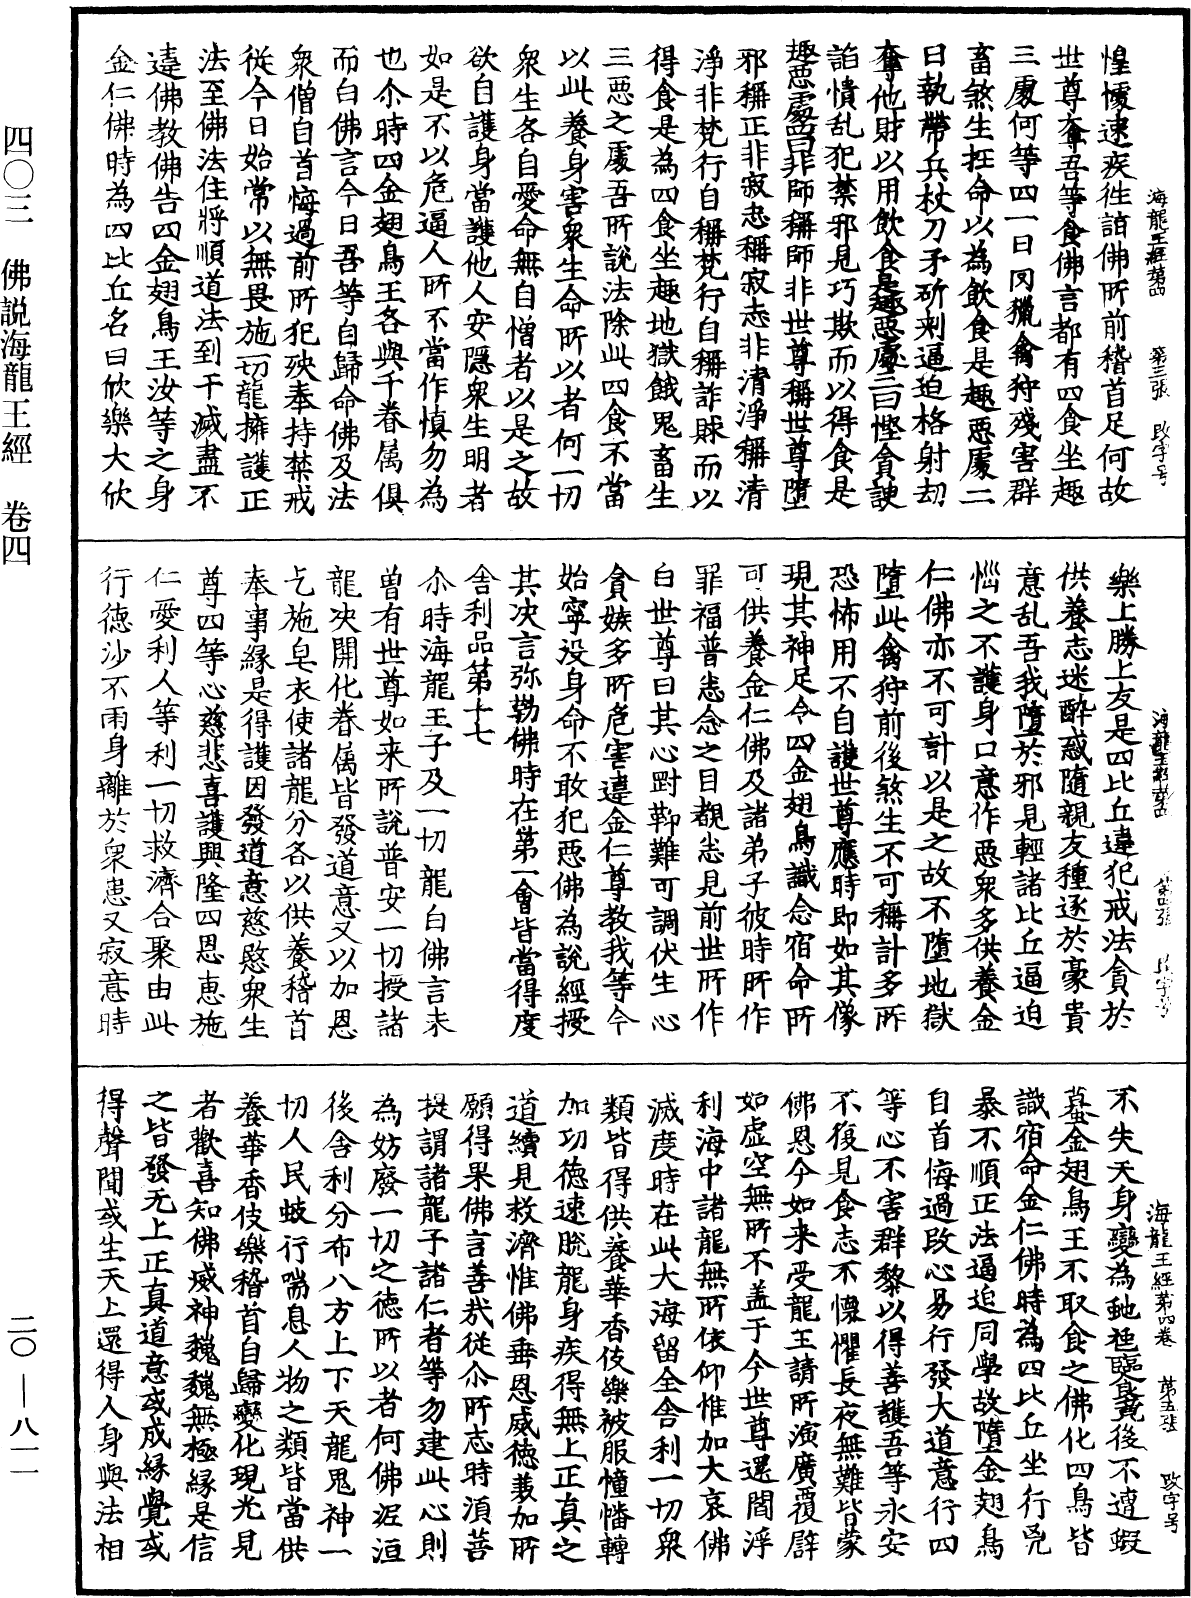 四〇三　佛説海龍王經　卷四
二〇—八一一
海龍王經第四　第三張　改字号
惶懅速疾徃詣佛所前稽首足何故
世尊奪吾等食佛言都有四食坐趣
三處何等四一曰㓙獵禽狩殘害群
畜煞生抂命以為飲食是趣惡處二
曰執帶兵杖刀矛斫刾逼迫格射劫
奪他財以用飲食是趣惡處三曰慳貪諛
諂憒乱犯禁邪見巧欺而以得食是
趣惡處四曰非師稱師非世尊稱世尊墮
邪稱正非寂志稱寂志非清淨稱清
淨非梵行自稱梵行自稱詐賕而以
得食是為四食坐趣地獄餓鬼畜生
三惡之處吾所說法除此四食不當
以此養身害衆生命所以者何一切
衆生各自愛命無自憎者以是之故
欲自護身當護他人安隱衆生明者
如是不以危逼人所不當作慎勿為
也尒時四金翅鳥王各與千眷属俱
而白佛言今日吾等自歸命佛及法
衆僧自首悔過前所犯殃奉持禁戒
從今日始常以無畏施一切龍擁護正
法至佛法住將順道法到于滅盡不
違佛教佛告四金翅鳥王汝等之身
金仁佛時為四比丘名曰欣樂大欣
海龍王經第四　第四張　改字号
樂上勝上友是四比丘違犯戒法貪於
供養志迷醉惑隨親友種逐於豪貴
意乱吾我墮於邪見輕諸比丘逼迫
惱之不護身口意作惡衆多供養金
仁佛亦不可計以是之故不墮地獄
墮此禽狩前後煞生不可稱計多所
恐怖用不自護世尊應時即如其像
現其神足令四金翅鳥識念宿命所
可供養金仁佛及諸弟子彼時所作
罪福普悉念之目覩悉見前世所作
白世尊曰其心㔻鞹難可調伏生心
貪嫉多所危害違金仁尊教我等今
始寧没身命不敢犯惡佛為說經授
其决言弥勒佛時在第一會皆當得度
舍利品第十七
尒時海龍王子及一切龍白佛言未
曾有世尊如来所說普安一切授諸
龍决開化眷属皆發道意又以加恩
乞施皂衣使諸龍分各以供養稽首
奉事緣是得護因發道意慈愍衆生
尊四等心慈悲喜護興隆四恩恵施
仁愛利人等利一切救濟合聚由此
行德沙不雨身離於衆患又寂意時
海龍王經第四卷　第五張　改字号
不失天身變為虵虺臨食後不遭蝦
蟇金翅鳥王不取食之佛化四鳥皆
識宿命金仁佛時為四比丘坐行㓙
暴不順正法逼迫同學故墮金翅鳥
自首悔過改心易行發大道意行四
等心不害群黎以得善護吾等永安
不復見食志不懷懼長夜無難皆蒙
佛恩今如来受龍王請所演廣覆譬
如虚空無所不盖于今世尊還閻浮
利海中諸龍無所依仰惟加大哀佛
滅度時在此大海留全舍利一切衆
類皆得供養華香伎樂被服幢幡轉
加功德速脱龍身疾得無上正真之
道續見救濟惟佛垂恩威德兼加所
願得果佛言善哉從尒所志時湏菩
提謂諸龍子諸仁者等勿建此心則
為妨廢一切之德所以者何佛泥洹
後舎利分布八方上下天龍鬼神一
切人民蚑行喘息人物之類皆當供
養華香伎樂稽首自歸變化現光見
者歡喜知佛威神巍巍無極緣是信
之皆發无上正真道意或成緣覺或
得聲聞或生天上還得人身與法相